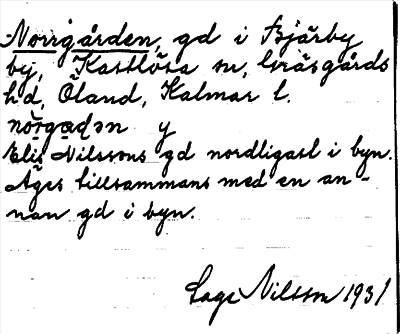 Norrgården, gd i Bjärby
by, Kastlösa sn, Gräsgårds
hd, Öland, Kalmar l.
nörgadən y
Elis Nilssons gd nordligast i byn.
Äges tillsammans med en an-
nan gd i byn.
Lage Nilsson 1931